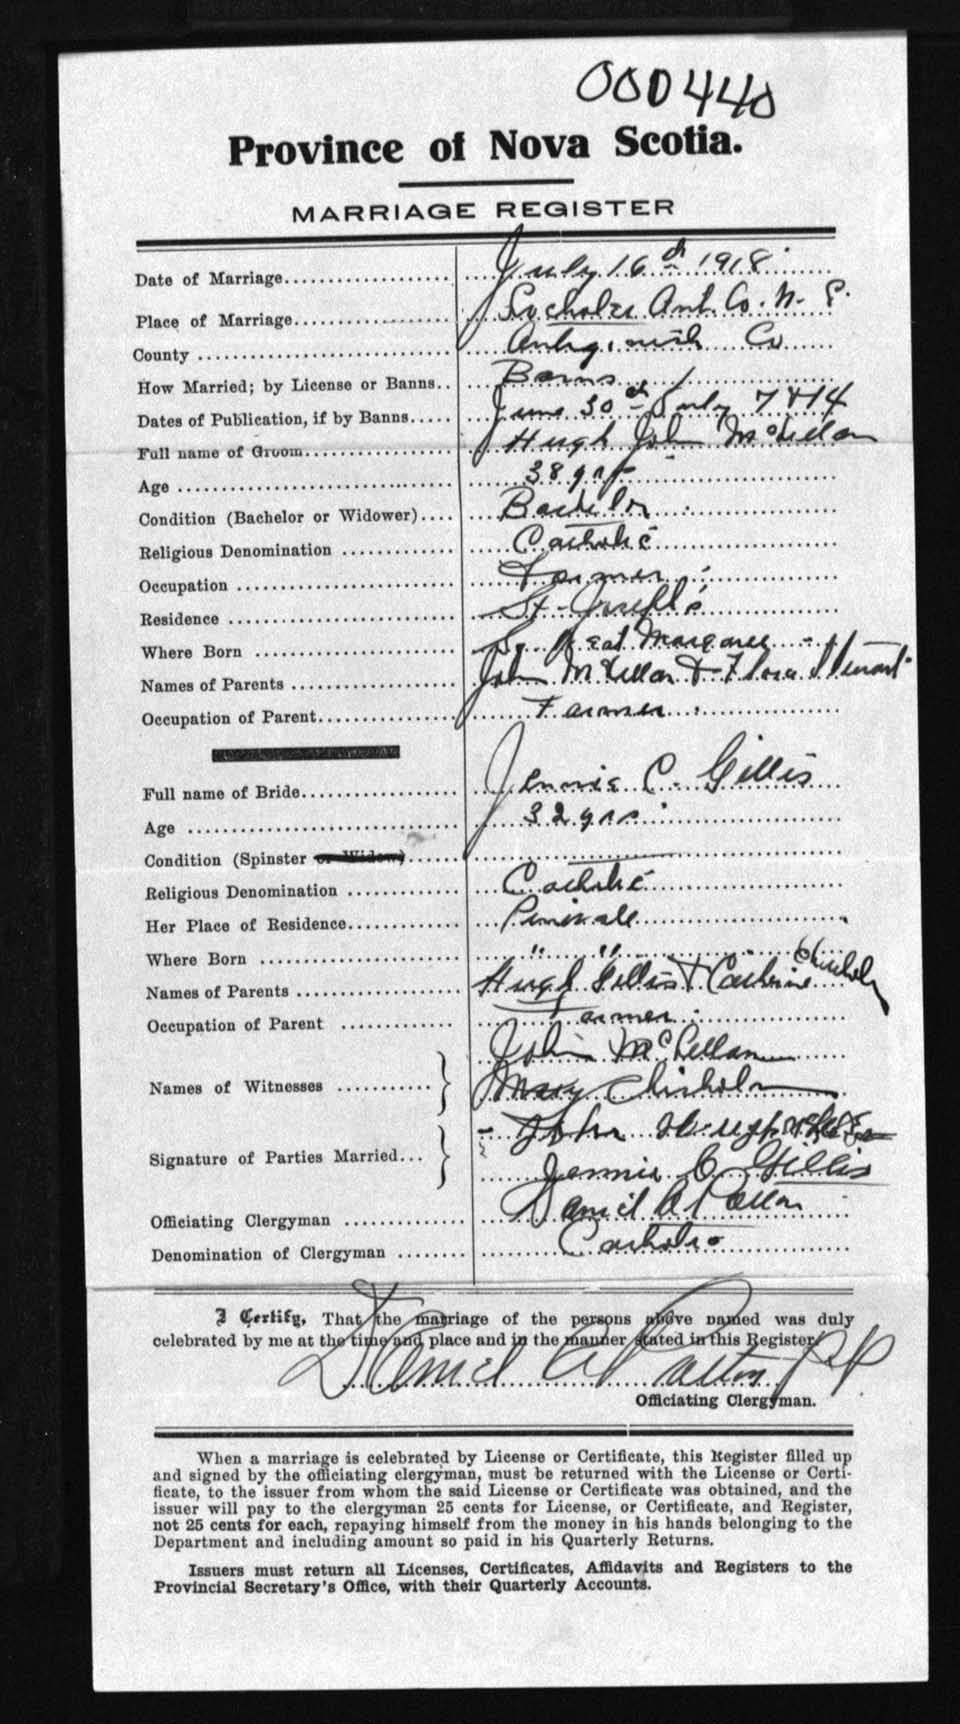 000440
Province of Nova Scotia.
MARRIAGE REGISTER
Date of Marriage July 16th 1918
Place of Marriage Ant. Co. N. S.
County Antigonish Co
How Married; by License or Banns.. Banns
Dates of Publication, if by Banns..... June 30th July 7 & 14
Full name of Groom Hugh John McLellan
Age 38 yrs
Condition (Bachelor or Widower).... Bachelor
Religious Denomination Catholic
Occupation Farmer
Residence St. Joseph's
Where Born Margaree
Names of Parents John McLellan & Flora Stewart
Occupation of Parent Farmer
Full name of Bride Jennie C. Gillis
Age 32 yrs
Condition (Spinster or Widow)
Religious Denomination Catholic
Her Place of Residence Pinevale
Where Born " "
Names of Parents Hugh Gillis & Catherine Chisholm
Occupation of Parent Farmer
Names of Witnesses John McLellan
Mary Chisholm
Signature of Parties Married... John Hugh
Jennie C Gillis
Officiating Clergyman Daniel A
Denomination of Clergyman Catholic
I Certify, That the marriage of the persons above named was duly
celebrated by me at the time and place and in the manner stated in this Register.
Daniel A P.P.
Officiating Clergyman.
When a marriage is celebrated by License or Certificate, this Register filled up
and signed by the officiating clergyman, must be returned with the License or Certi-
ficate, to the issuer from whom the said License or Certificate was obtained, and the
issuer will pay to the clergyman 25 cents for License, or Certificate, and Register,
not 25 cents for each, repaying himself from the money in his hands belonging to the
Department and including amount so paid in his Quarterly Returns.
Issuers must return all Licenses, Certificates, Affidavits and Registers to the
Provincial Secretary's Office, with their Quarterly Accounts.